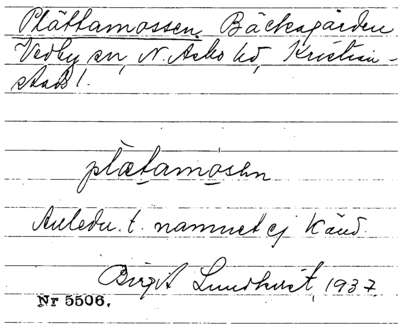 Plättamossen, Bäcksgården
Vedby sn, N. Åsbo hd, Kristian-
stads l.
plætamosen
Anledn. t. namnet ej känd.
Birgit Lundkvist, 1937
Nr 5506.